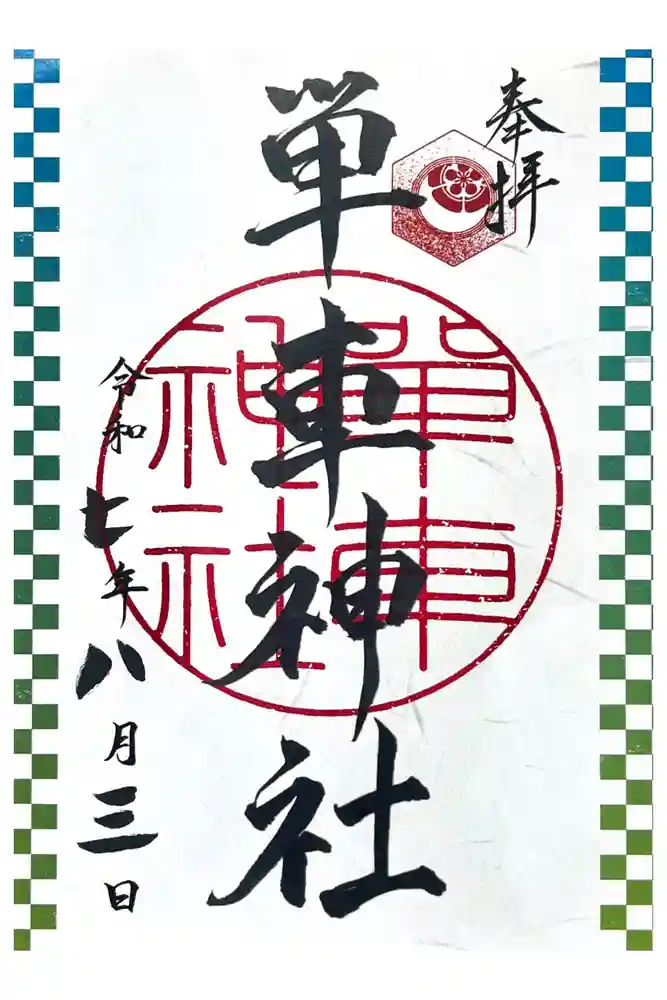 奉拝
単車神社
單車
神社
令和七年八月三日